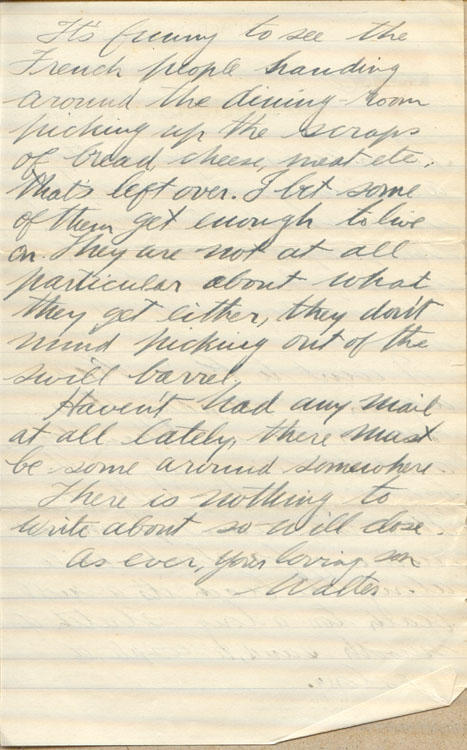 It's funny to see the
French people handing
around the dining room
picking up the scraps
of bread cheese, meat etc.
that's left over. I bet some
of them get enough to live
on. They are not at all
particular about what
they get either, they don't
mind picking out of the
swill barrel.
Haven't had any mail
at all lately, there must
be some around somewhere.
There is nothing to
write about so will close.
As ever, your loving son
Walter